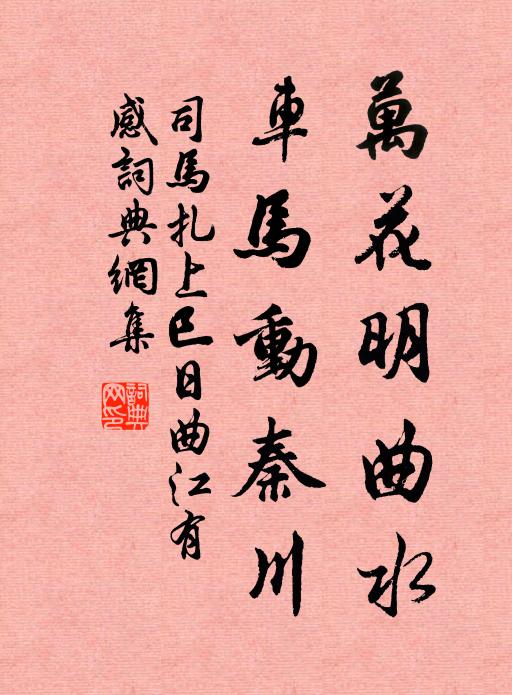 萬花明曲水
車馬動秦川
司馬扎上巳日曲江有
感詞典網集
詞典
网印